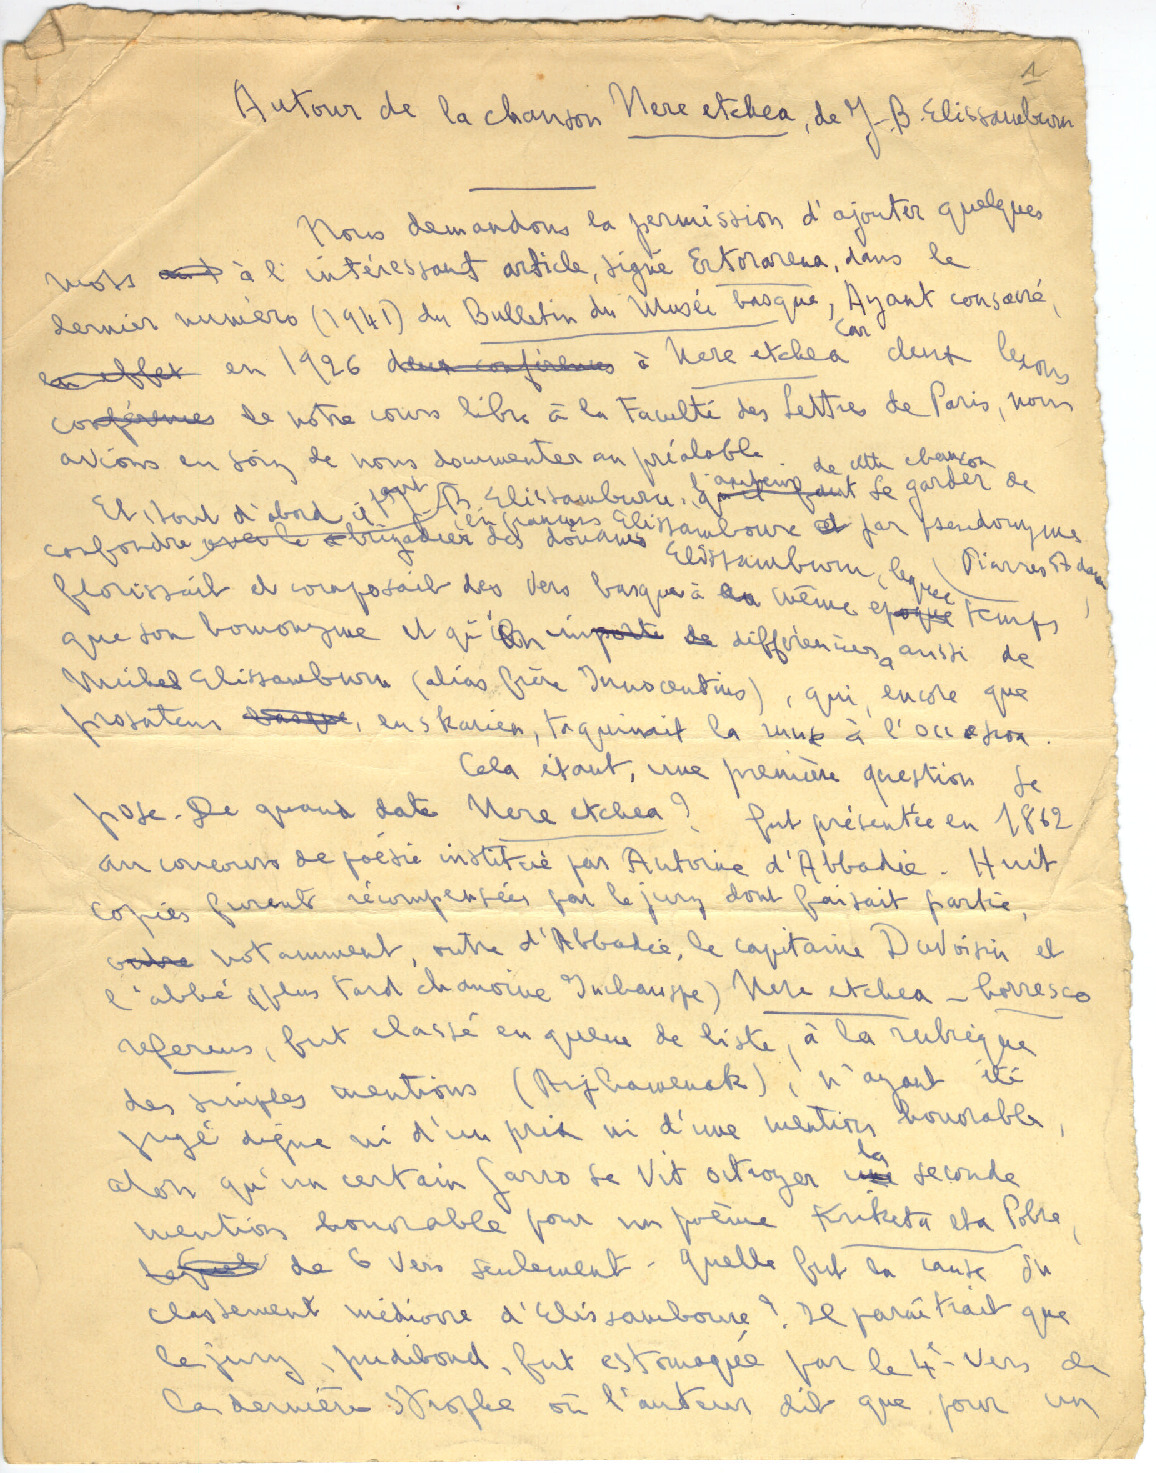 1
Autour de la chanson Nere etchea, de J-B. Elissamburu
Nous demandons la permission d'ajouter quelques
mots à l'intéressant article, signé Ertorarena, dans le
dernier numéro (1941) du Bulletin du Musée basque, Ayant consacré,
en effet en 1926 deux conférences à Nere etchea car deux leçons
conférences de notre cours libre à la Faculté des Lettres de Paris, nous
avions eu soin de nous documenter au préalable
Et, tout d'abord il faut Elissamburu, l'auteur de cette chanson qu'il faut se garder de
confondre avec le brigadier des douanes en français Elissamboure et par pseudonyme
Elissamburu, lequel Piarres Adame
florissait et composait des vers basques à la même époque temps
que son homonyme et qu'il importe de différencier aussi de
Michel Elissamburu (alias frère Innocentius), qui, encore que
prosateur basque, euskarien, taquinait la muse à l'occasion.
Cela étant, une première question se
pose. De quand date Nere etchea? fut présentée en 1862
au concours de poésie institué par Antoine d'Abbadie. Huit
copies furent récompensées par le jury dont faisait partie,
outre notamment, outre d'Abbadie, le capitaine Duvoisin et
l'abbé (plus tard chanoine Inchauspe) Nere etchea - horresco
referens, fut classé en queue de liste, à la rubrique
des simples mentions (), n'ayant été
jugé digne ni d'un prix ni d'une mention honorable,
alors qu'un certain Garro se vit octroyer la seconde
mention honorable pour un poème Kriketa eta Pobre,
lequel de 6 vers seulement - quelle fut la cause du
classement médiocre d'Elissamboure? Il paraîtrait que
le jury, pudibond, fut estomaqué par le 4e vers de
la dernière strophe où l'auteur dit que pour un